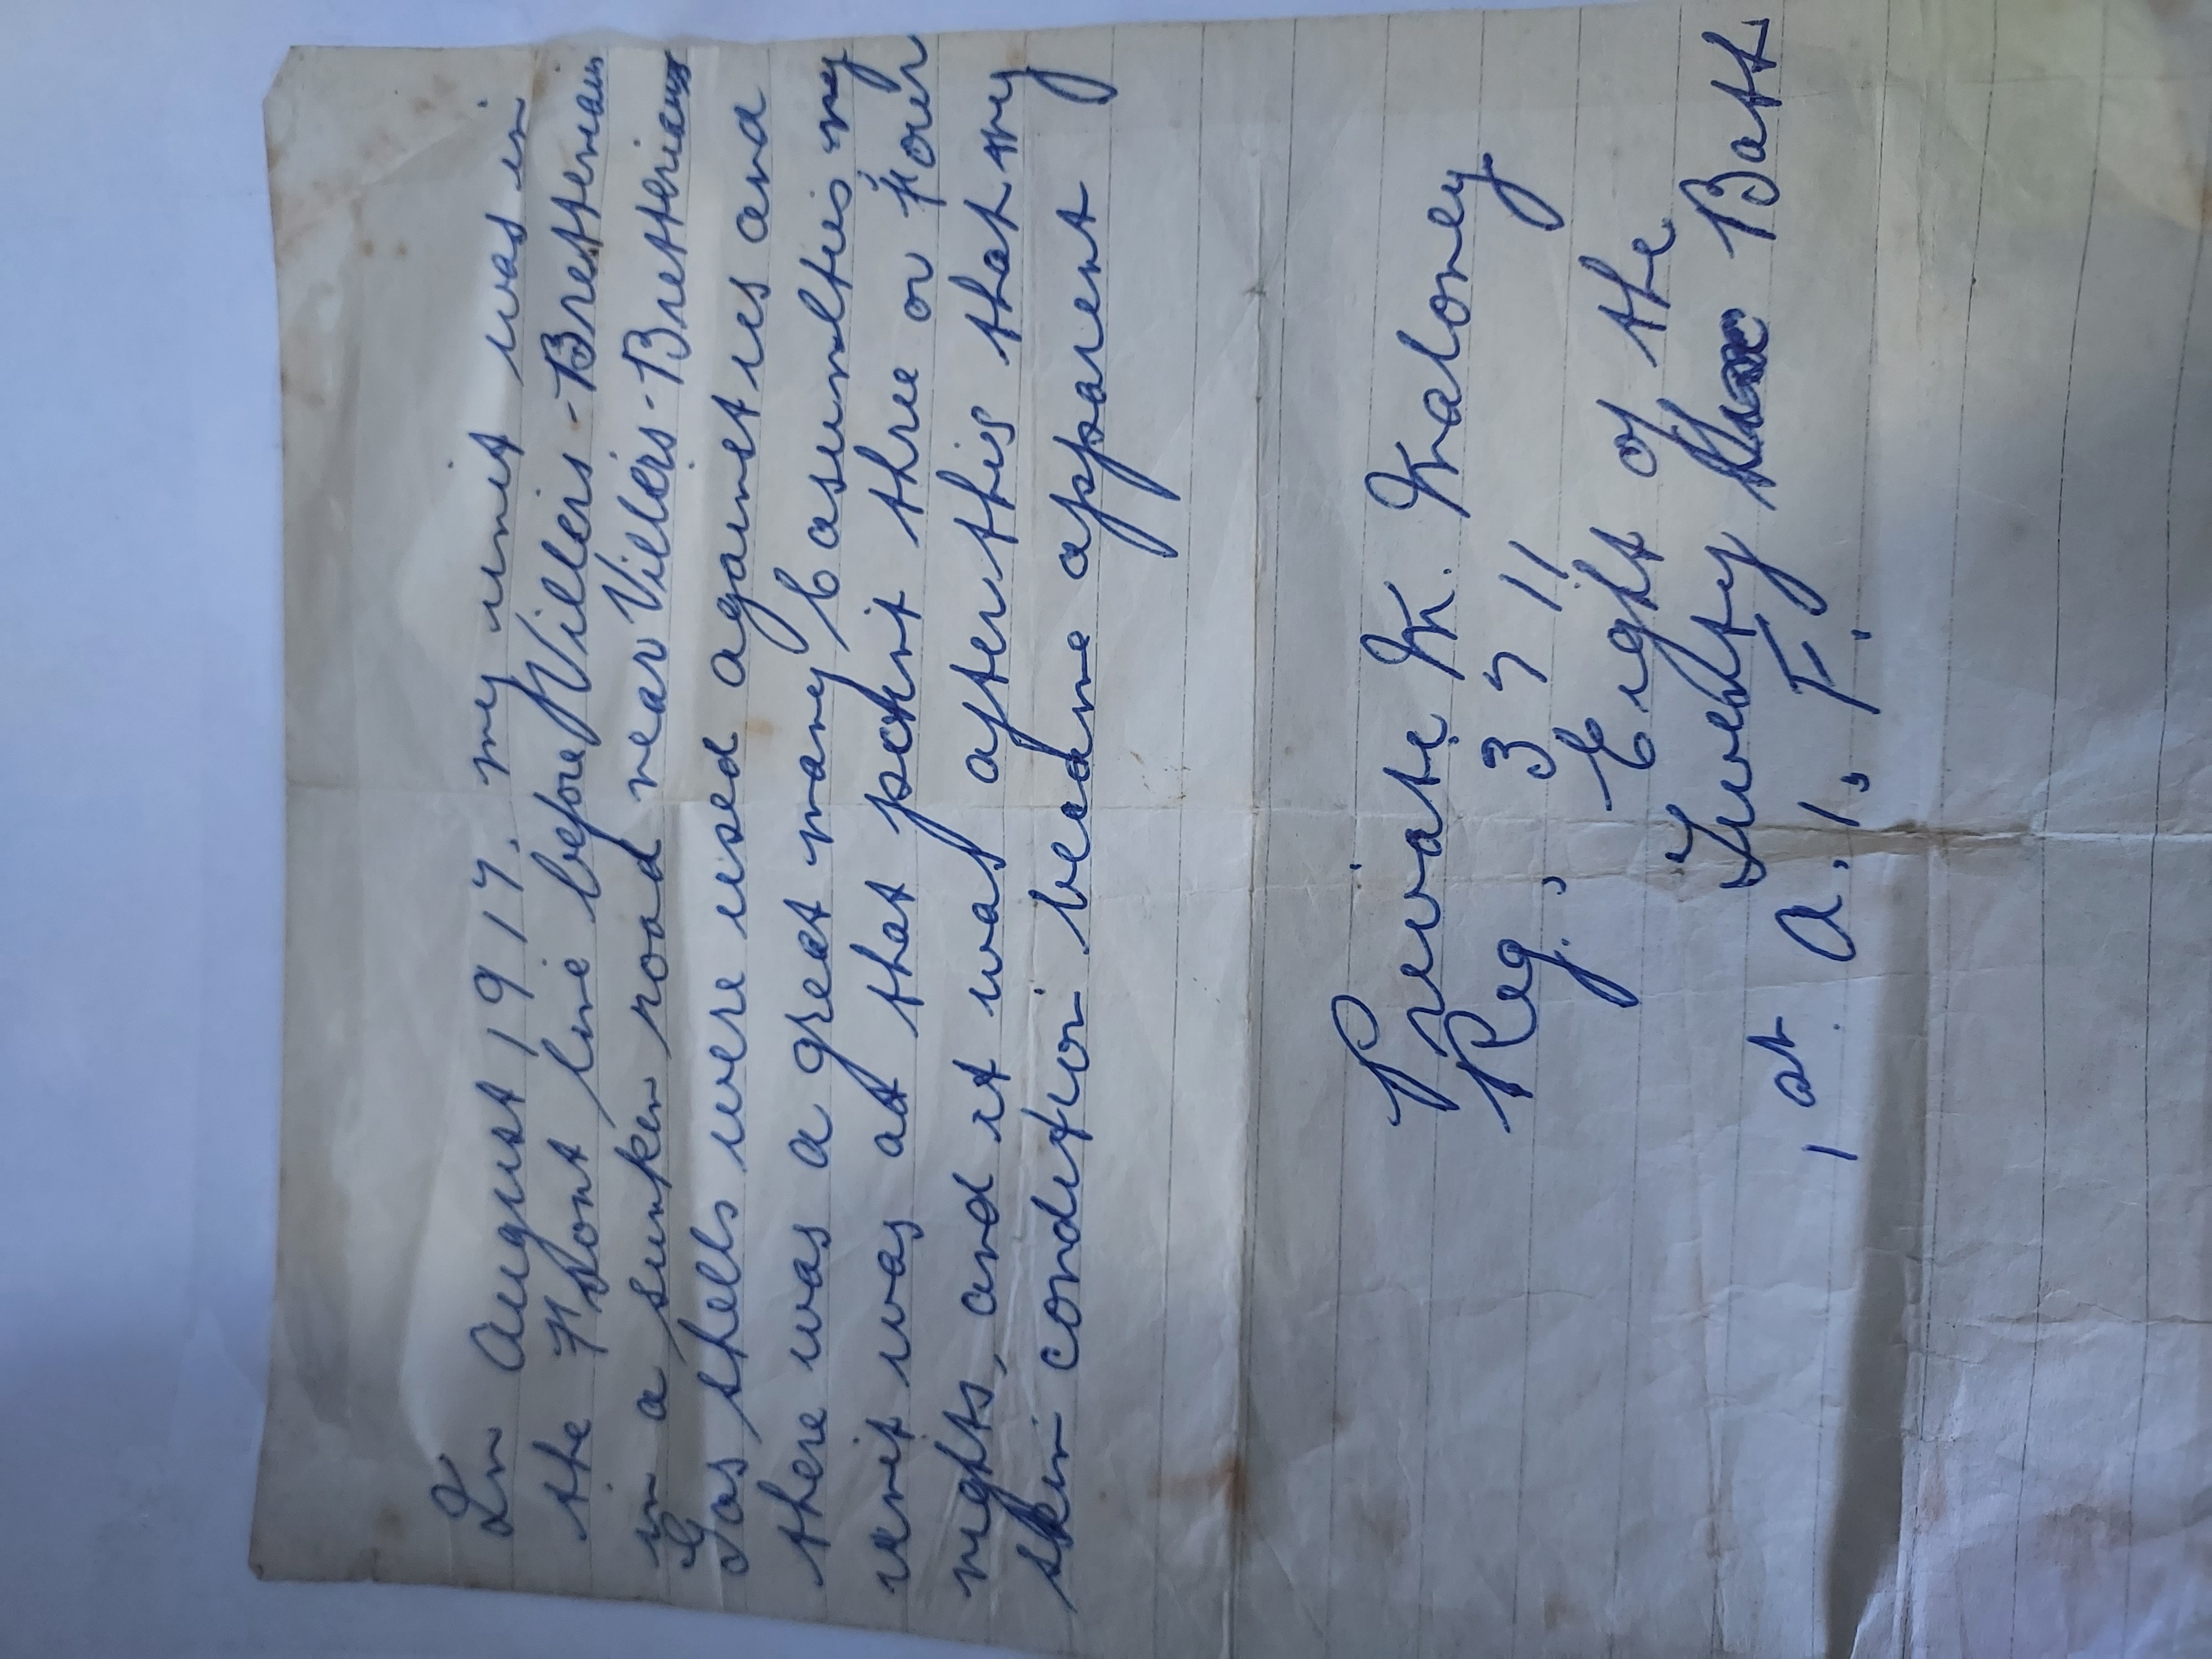 In August 1917. my unit was in
the Front line before Villers-Brettenau
in a sunken road near Villers-Bretteriaus
Gas shells were used against us and
there was a great many Casunlties my
unit was at that point three or four
nights, and it was after this that my
skin condition became apparent
Private M. Maloney
Reg. 3711
Eight of the
Twenty Batt
1st A.I.F.